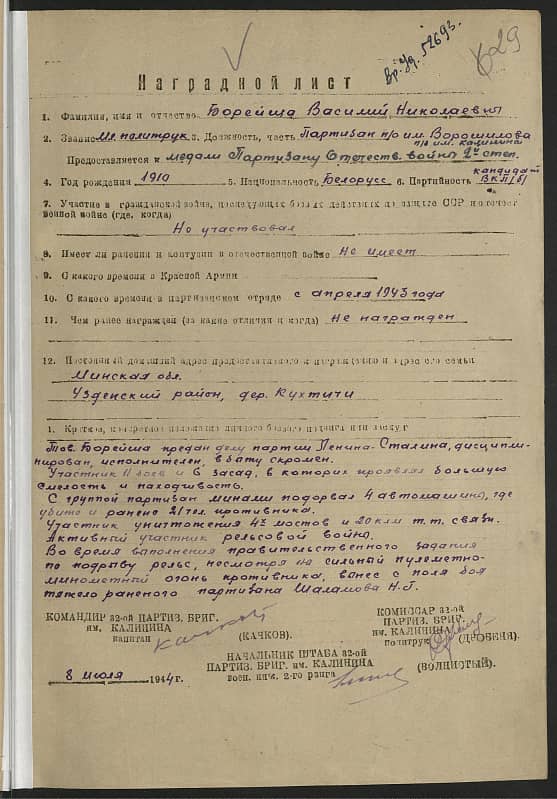 Вр. Уд. 52693.
629
Наградной лист
1. Фамилия, имя и отчество Борейша Василий Николаевич
2. Звание Мл политрук 3. Должность, часть Партизан п/о им. Ворошилова
п/б им. Калинина
Представляется к медали "Партизану Отечеств. войны 2й степ.
4. Год рождения 1910 5. Национальность Белорусс 6. Партийность кандидат ВКП/б/
7. Участие в гражданской войне, последующих боевых действиях по защите ССР и отечественной
войне (где, когда)
Не участвовал
8. Имеет ли ранения и контузии в отечественной войне Не имеет
9. С какого времени в Красной Армии
10. С какого времени в партизанском отряде с апреля 1943 года
11. Чем ранее награжден (за какие отличия и когда) Не награжден
12. Постоянный домашний адрес представляемого к награждению и адрес его семьи
Минская обл.
Узденский район, дер. Кухтичи
1. Краткое, конкретное изложение личного боевого подвига или заслуг
Тов. Борейша предан делу партии Ленина-Сталина, дисципли-
нирован, исполнителен, в быту скромен.
Участник 11 боев и 8 засад, в которых проявлял большую
смелость и находчивость.
С группой партизан минами подорвал 4 автомашины, где
убито и ранено 21 чел. противника.
Участник уничтожения 4х мостов и 20 клм т.т. связи.
Активный участник рельсовой войны.
Во время выполнения правительственного задания
по подрыву рельс, несмотря на сильный пулеметно-
минометный огонь противника, вынес с поля боя
тяжело раненого партизана Шаламова Н.Г.
КОМАНДИР 32-ой ПАРТИЗ. БРИГ.
им. КАЛИНИНА
капитан (КАЧКОВ).
КОМИССАР 32-ой
ПАРТИЗ. БРИГ.
им. КАЛИНИНА
политрук (ДРОБЕНЯ).
НАЧАЛЬНИК ШТАБА 32-ой
ПАРТИЗ. БРИГ. им. КАЛИНИНА
воен. инж. 2-го ранга (ВОЛНИСТЫЙ).
8 июля 1944г.